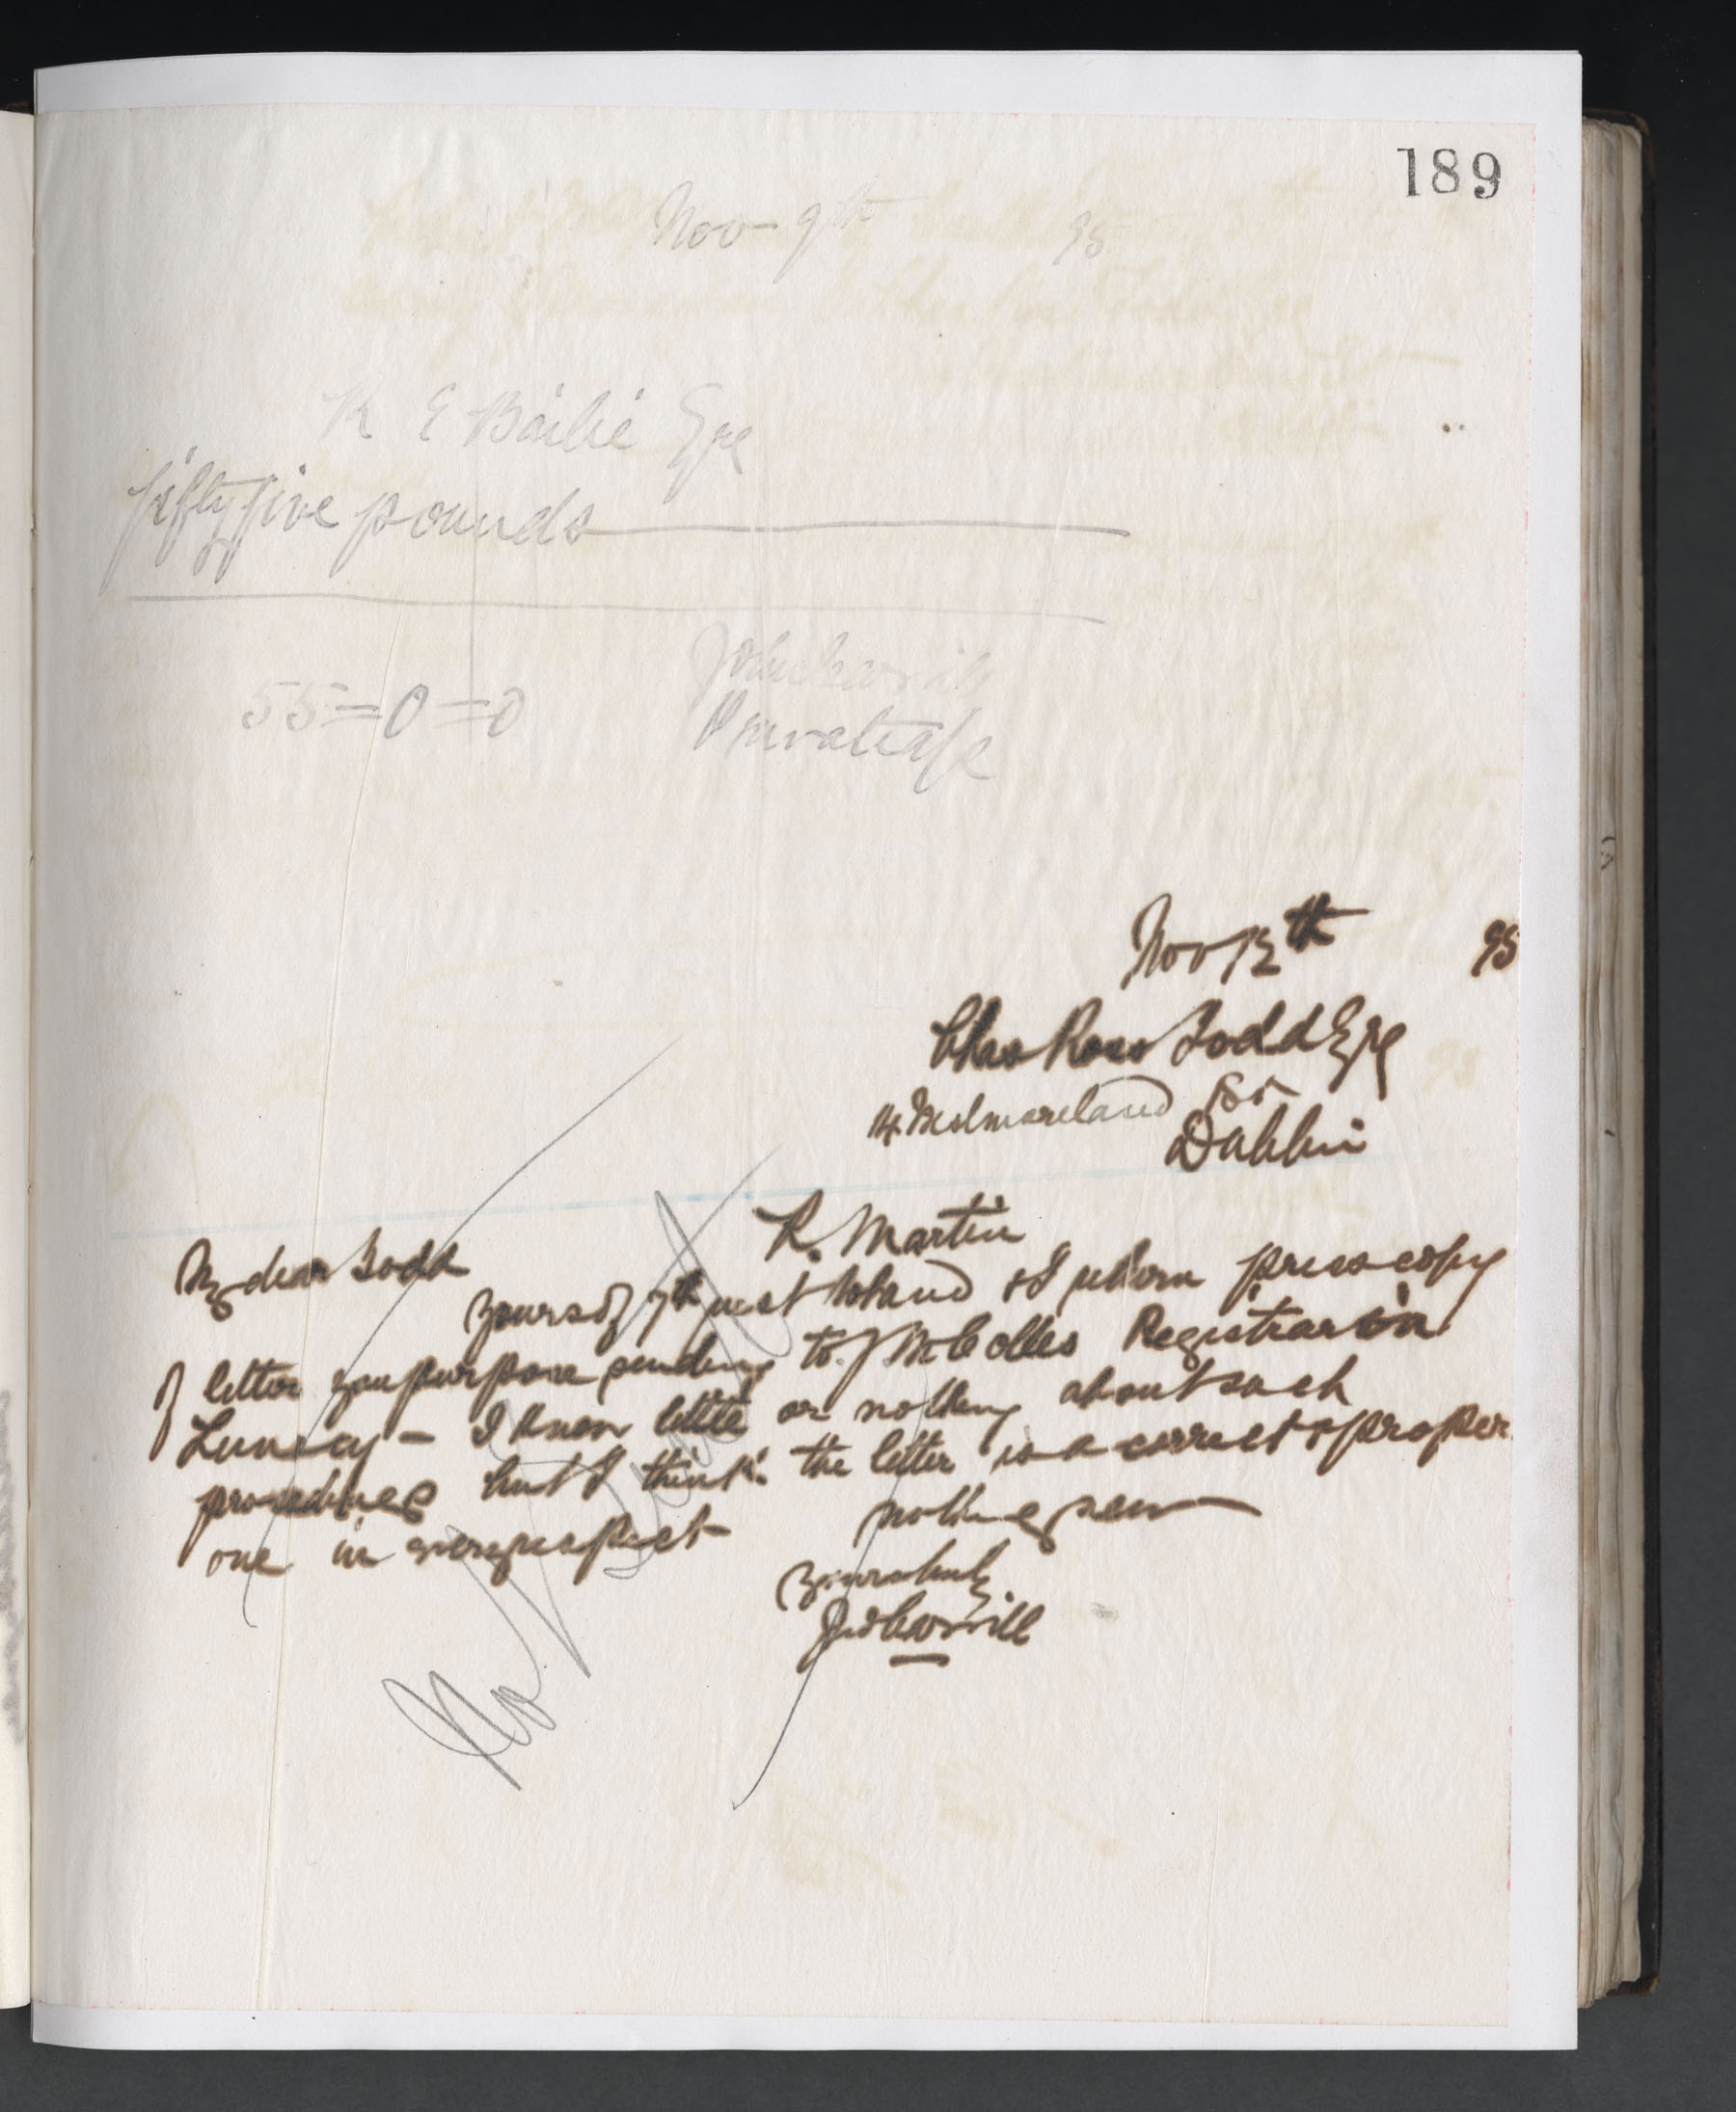 189
Nov 9th 95
R E Bailie Esqe
fifty five pounds
55=0=0
Private a/c
Nov 12th 95
Chas Ross Todd Esqe
14 Westmoreland St
Dublin
R. Martin
My dear Todd
Yours of 7th inst to hand & I return press copy
of letter you purpose sending to J M Colles Registrar in
Lunacy - I know little or nothing about such
procedures but I think the letter is a correct & proper
one in every respect -
nothing new
Yours truly